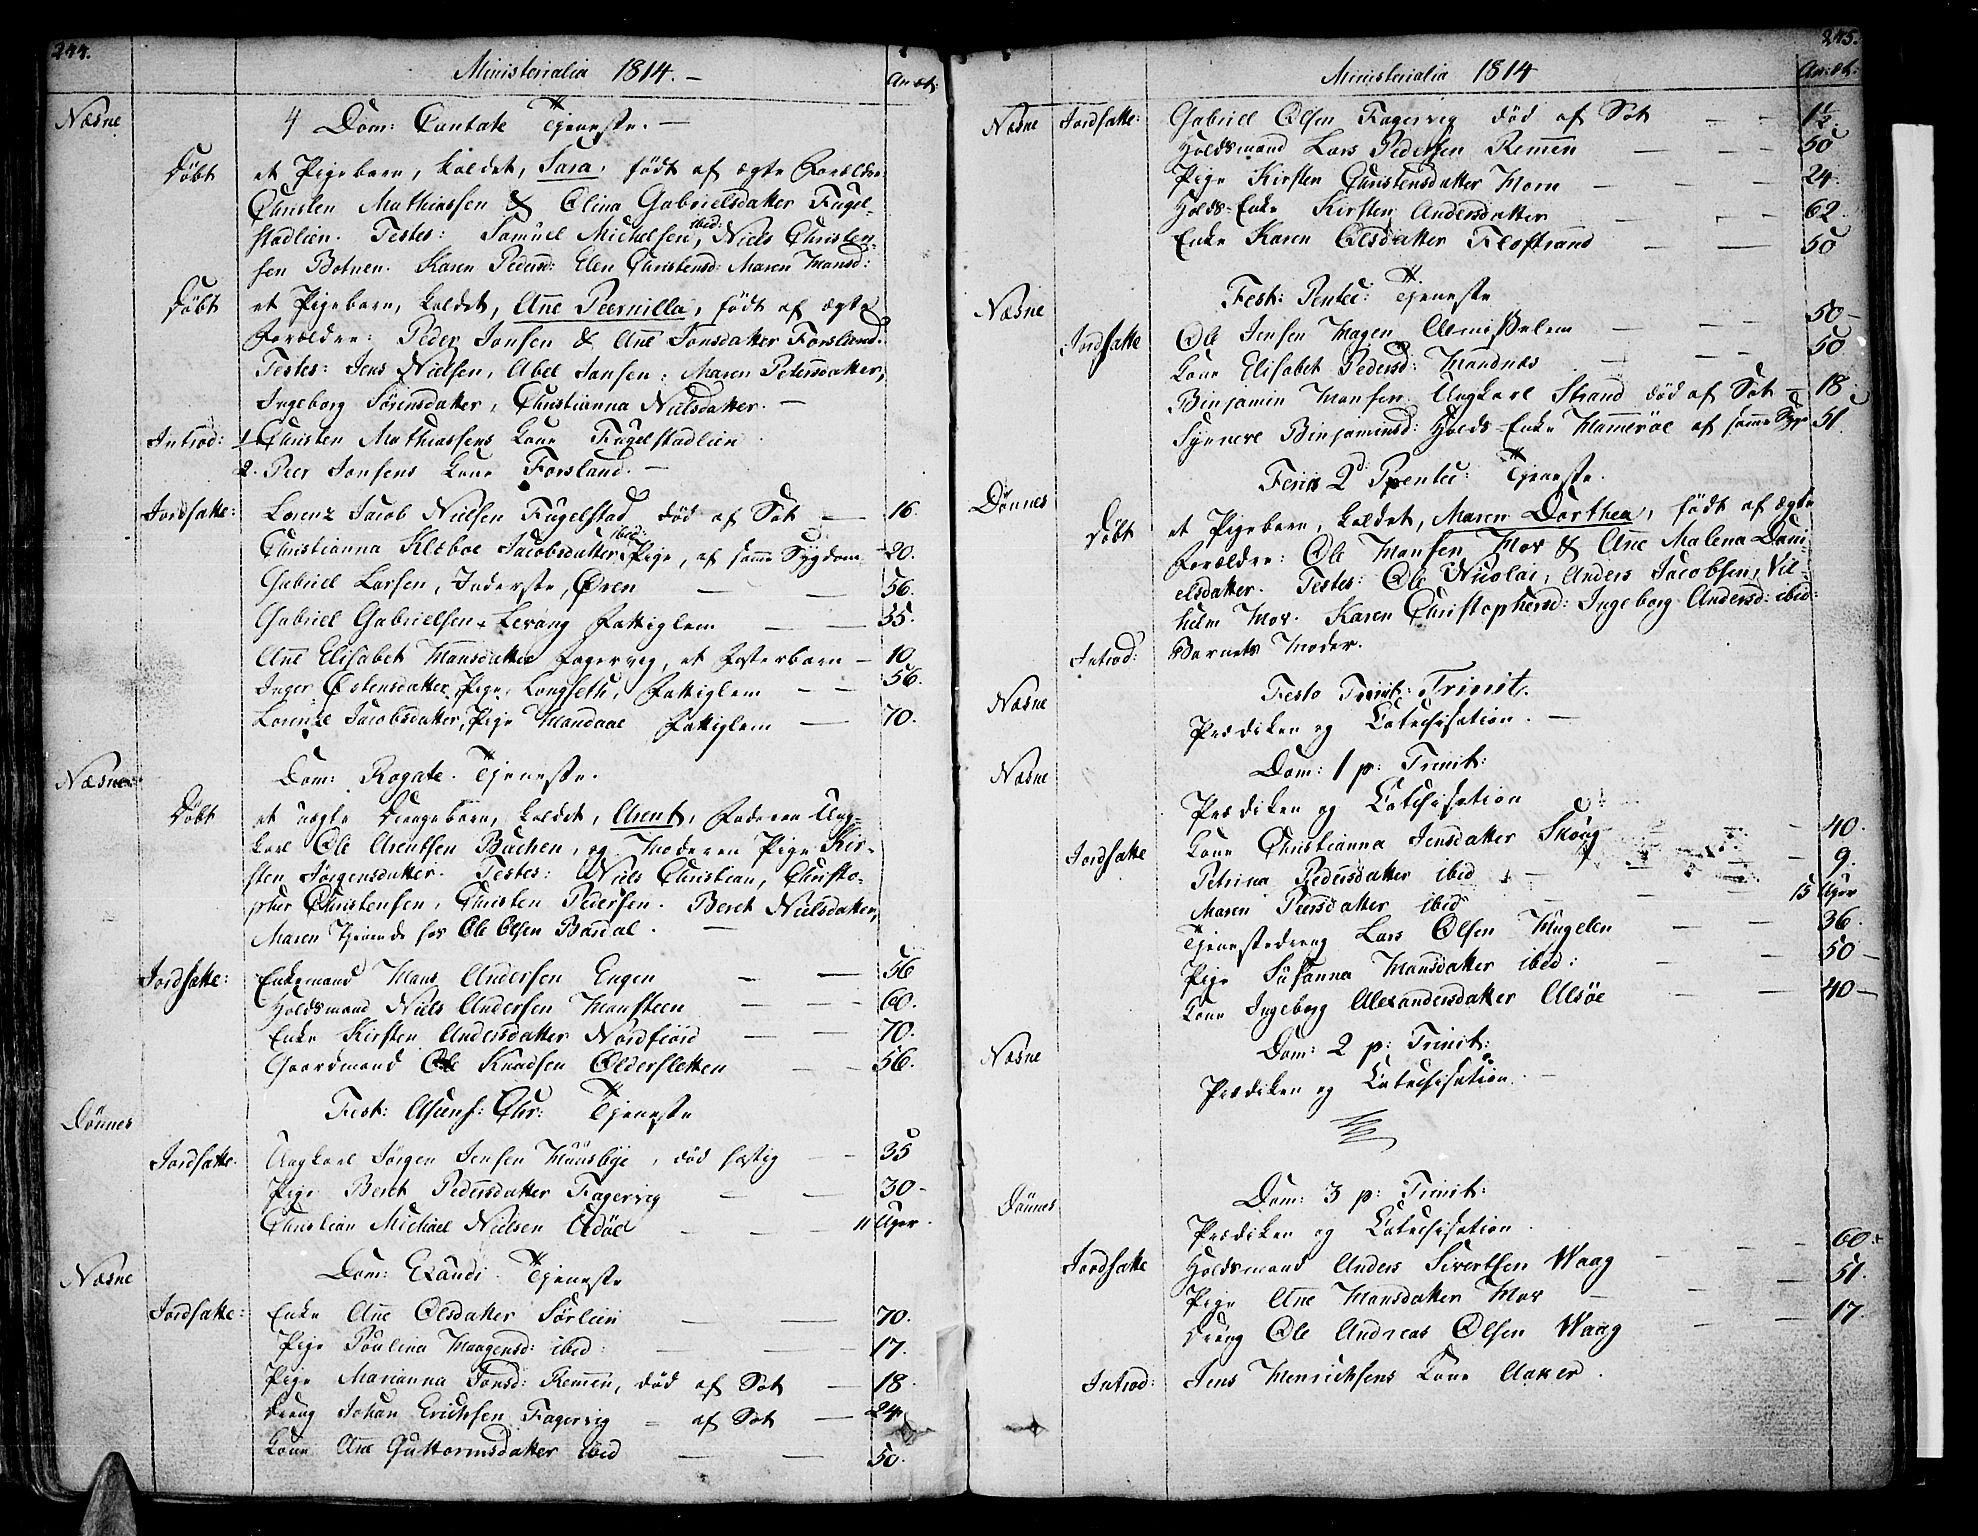 244.
Ministerialia 1814. –
An: æt:
Næsne
4 Dom: Cantate Tjeneste. –
Døbt et Pigebarn, kaldet, Sara, født af ægte Forældre:
Christen Mathiassen & Elina Gabrielsdatter Fugel-
stadlien. Testes: Samuel Michelsen ibid:, Niels Christen-
sen Botnen. Karen Pedersd: Elen Christensd: Maren Hansd:
Døbt et Pigebarn, kaldet, Ane Peernilla, født af ægte
Forældre: Peder Jonsen & Ane Jonsdatter Forsland.
Testes: Jens Nielsen, Abel Jonsen, Maren Petersdatter,
Ingeborg Sørensdatter, Christianna Nielsdatter. –
Introd: 1. Christen Mathiassens Kone Fugelstadlien
2. Peer Jonsens Kone Forsland. –
Jordsatte: Lorenz Jacob Nielsen Fugelstad død af Sot — 16.
Christianna Klæboe Jacobsdatter ibid: Pige, af samme Sygdom – 20.
Gabriel Larsen, Inderste, Øren — 56.
Gabriel Gabrielsen Levang Fattiglem — — 55.
Ane Elisabet Hansdatter Fagervig, et Fosterbarn – 10.
Inger Østensdatter, Pige, Langseth, Fattiglem — — 56.
Lorenze Jacobsdatter, Pige Handaae Fattiglem — 70.
Næsne
Dom: Rogate. Tjeneste.
Døbt et uægte Drengebarn, kaldet, Arent, Faderen Ung-
karl Ole Arentsen Bachen, og Moderen Pige Kir-
sten Jørgensdatter. Testes: Niels Christian, Christo-
pher Christensen, Christen Pedersen. Beret Nielsdatter,
Maren tjenende hos Ole Olsen Bardal. —
Jordsatte: Enkemand Hans Andersen Engen — — 56
Holdsmand Niels Andersen Hansteen — — — 60.
Enke Kirsten Andersdatter Nordfiord — — 70.
Gaardmand Ole Knudsen Oldersletten — — 56.
Dønnes
Fest: Ascens: Chr: Tjeneste
Jordsatte. Ungkarl Jørgen Jensen Huusbye, død hastig — — 35
Pige Beret Pedersdatter Fagervig — — 30 –
Christian Michael Nielsen — — — 11 Uger.
Næsne
Dom: Exaudi. Tjeneste
Jordsatte: Enke Ane Olsdatter Sørlein — — 70.
Pige Paulina Haagensd: ibid: — — — 17.
Pige Marianna Jonsd: Remen, død af Sot — 18.
Dreng Johan Erichsen Fagervig – af Sot — 24
Kone Ane Guttormsdatter ibid — — 50.
245.
Ministerialia 1814
An: æt:
Næsne
Jordsatte: Gabriel Olsen Fagervig død af Sot — — 1½.
Holdsmand Lars Pedersen Remen — — — 50
Pige Kirsten Christensdatter Horn — — — 24.
Holds-Enke Kirsten Andersdatter — — — 62.
Enke Karen Olsdatter Flostrand — — 50
Næsne
Fest: Pentec: Tjeneste
Jordsatte Ole Jensen Hagen Almisselem — — — 50 –
Kone Elisabet Pedersd: Handnæs — — — 50
Binjamin Hansen Ungkarl Strand død af Sot – 18
Synnere Binjaminsd: Holds-Enke Hammerøe af samme Syge 51.
Dønnes
Feria 2d Pentec: Tjeneste.
Døbt et Pigebarn, kaldet, Maren Dorthea, født af ægte
Forældre: Ole Hansen Mor & Ane Malena Dani-
elsdatter. Testes: Ole Nicolai, Anders Jacobsen, Vil-
helm Mor. Karen Christophersd: Ingeborg Andersd: ibid:
Introd: Barnets Moder.
Næsne
Festo Trinit: Trinit.
Prædiken og Catechisation. –
Næsne
Dom: 1 p: Trinit:
Prædiken og Catechisation
Jordsatte Kone Christianna Jensdatter Skoug — 40.
Petrina Pedersdatter ibid — — 9.
Maren Peersdatter ibid — — — 15 Uger
Tjenestedreng Lars Olsen Hugelen — — — 36.
Pige Susanna Hansdatter ibid: — — 50 –
Kone Ingeborg Alexandersdatter Alsøe — — 40 –
Næsne
Dom: 2 p: Trinit:
Prædiken og Catechisation. –
Dønnes
Dom: 3 p: Trinit:
Prædiken og Catechisation.
Jordsatte Holdsmand Anders Sivertsen Waag — — — 60.
Pige Ane Hansdatter Mor — — 51.
Dreng Ole Andreas Olsen Waag — — 17.
Introd: Jens Henrichsens Kone Aaker.